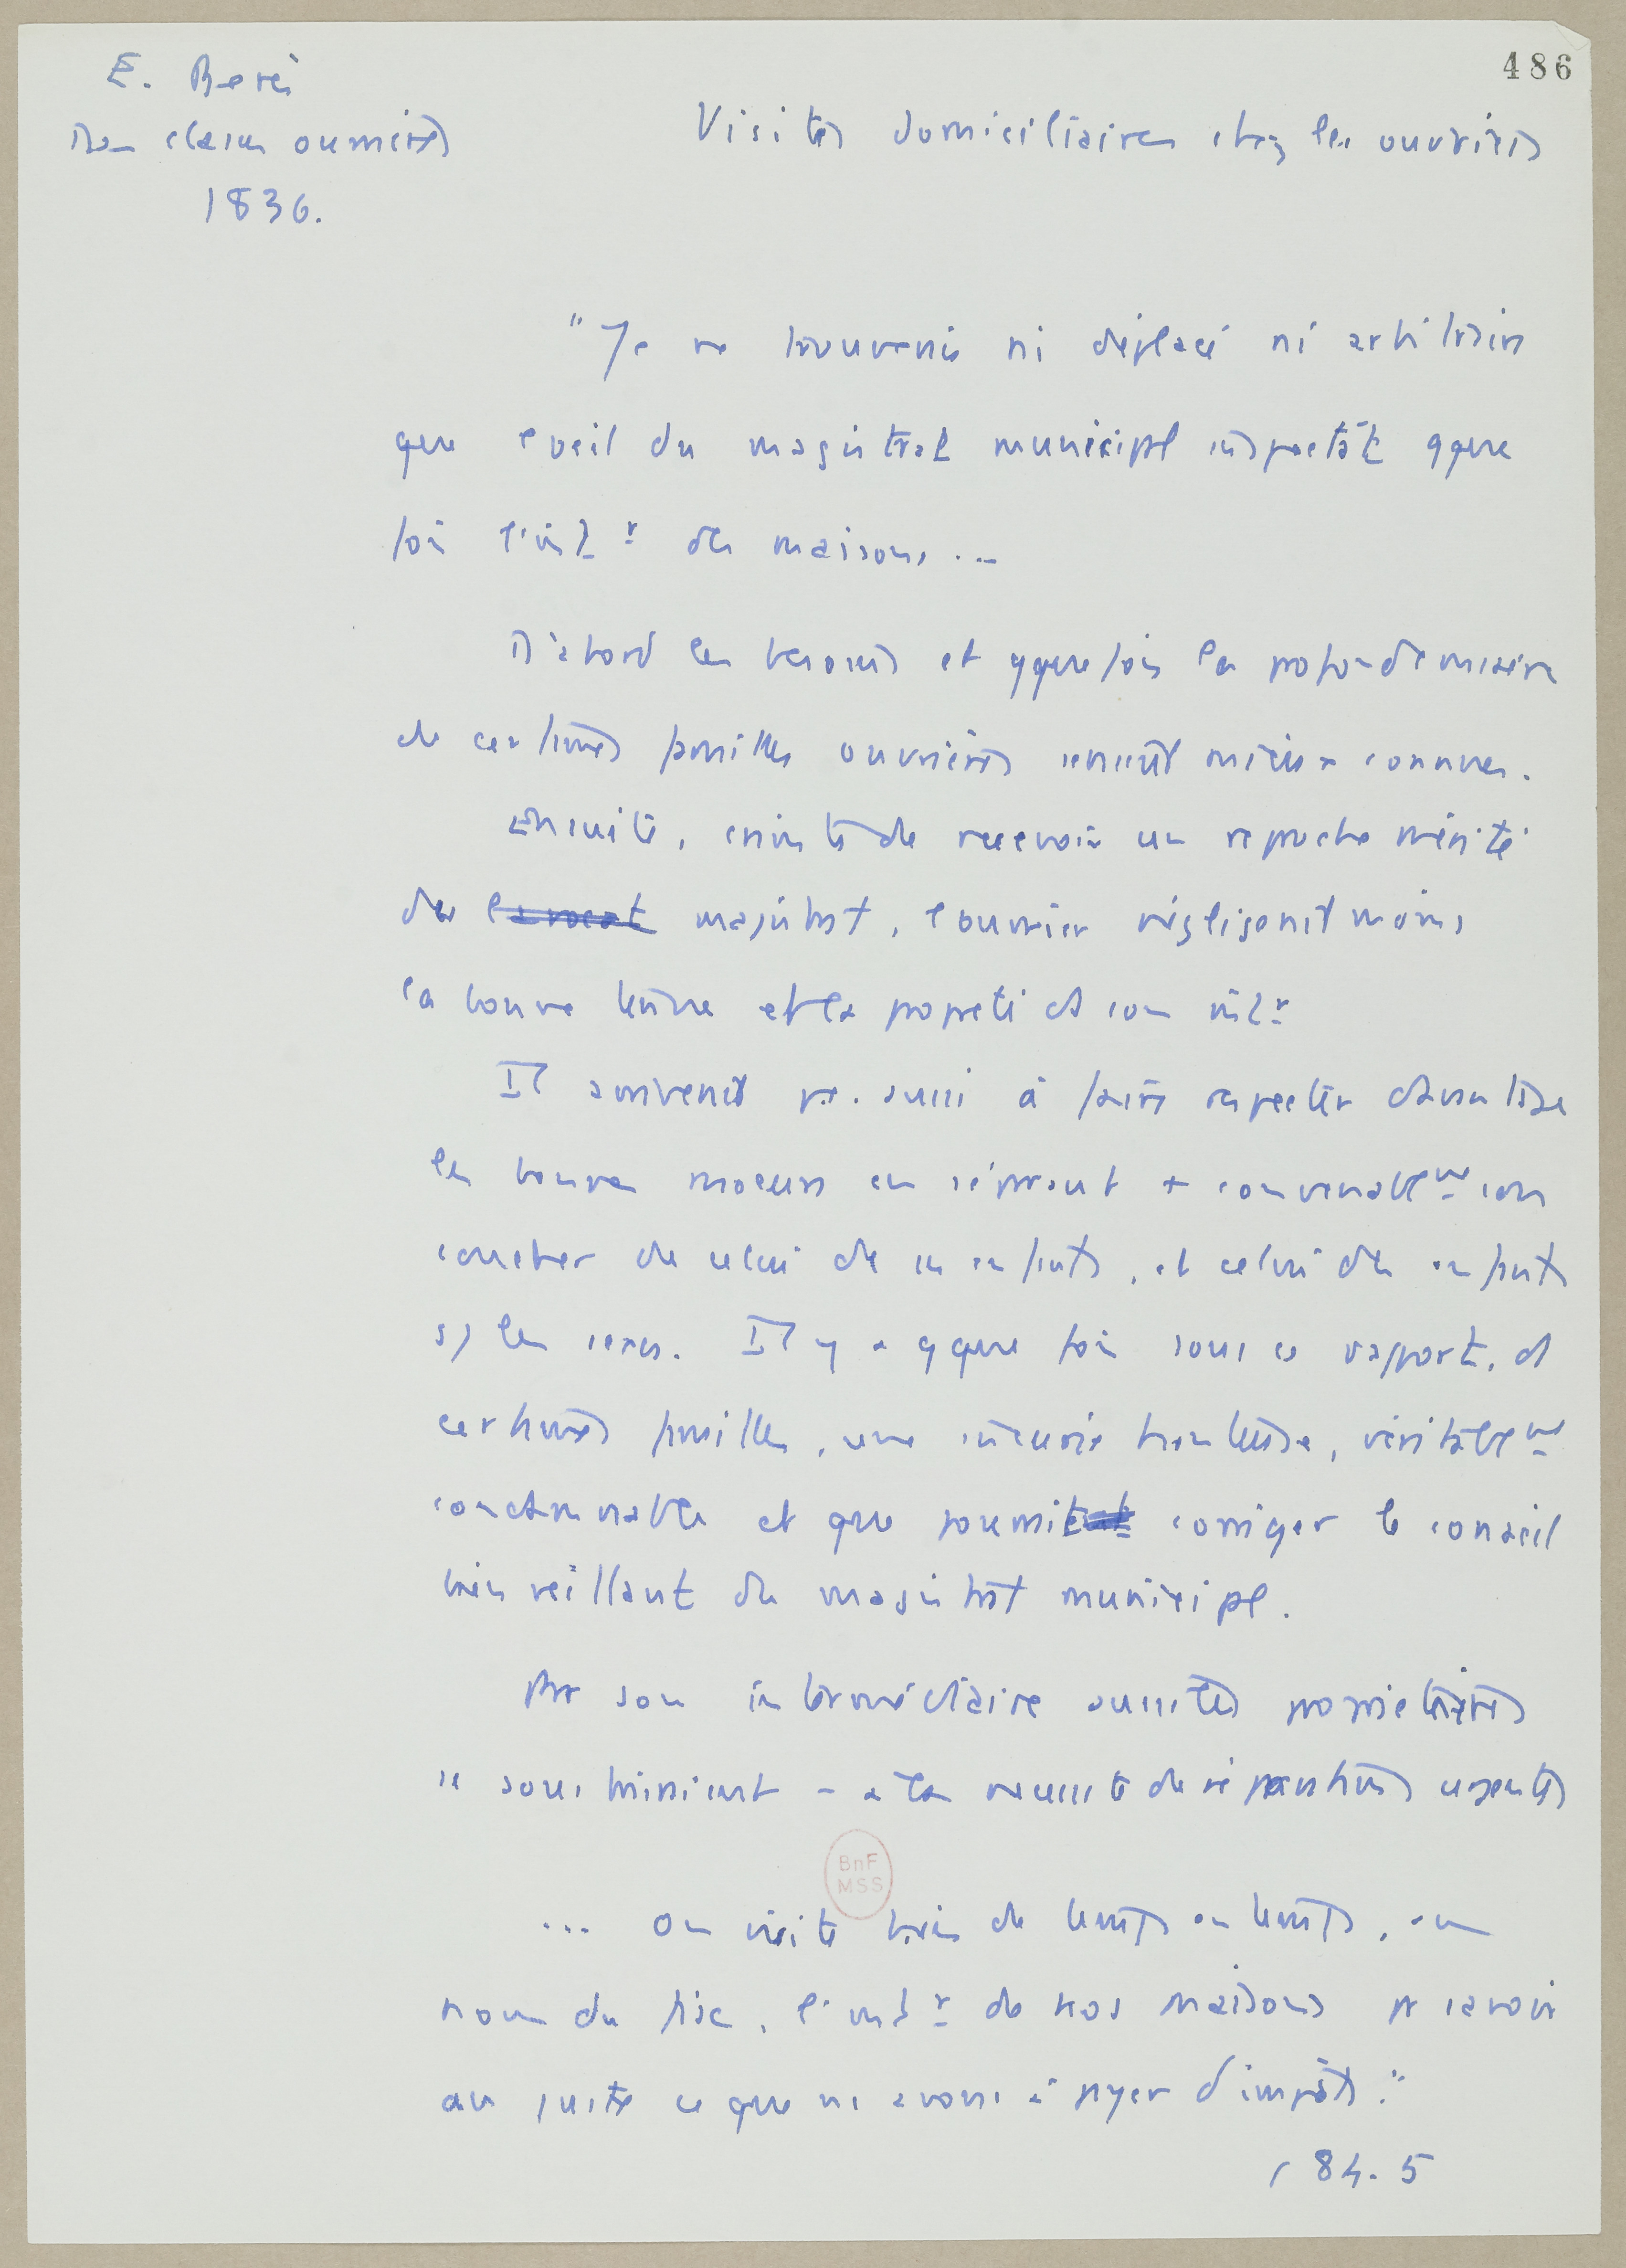 486
E. Beres
Des classes ouvrières
1836.
Visites domiciliaires chez les ouvriers
"Je ne trouverais ni déplacé ni arbitraire
que l'oeil du magistrat municipal inspectât qque
fois l'intr des maisons...
D'abord les besoins et qquefois la profonde misère
de certaines familles ouvrières seraient mieux connues.
Ensuite, crainte de recevoir un reproche mérité
du magistrat, l'ouvrier négligerait moins
la bonne tenue et la propreté de son intr
Il arriverait pê. aussi à faire respecter davantage
les bonnes moeurs en séparant + convenablemt son
coucher de celui de ses enfants, et celui des enfants
s/ les sexes. Il y a qque fois sous ce rapport, ds
certaines familles, une incurie honteuse, véritablemt
condamnable et que pourrait corriger le conseil
bienveillant du magistrat municipal.
Par son intermédiaire aussi les propriétaires
se soustrairaient - à la nécessité de réparations urgentes
... On visite bien de temps en temps, au
nom du fisc, l'intr de nos maisons pr savoir
au juste ce que ns avons à payer d'impôts."
84-5
BnF
MSS